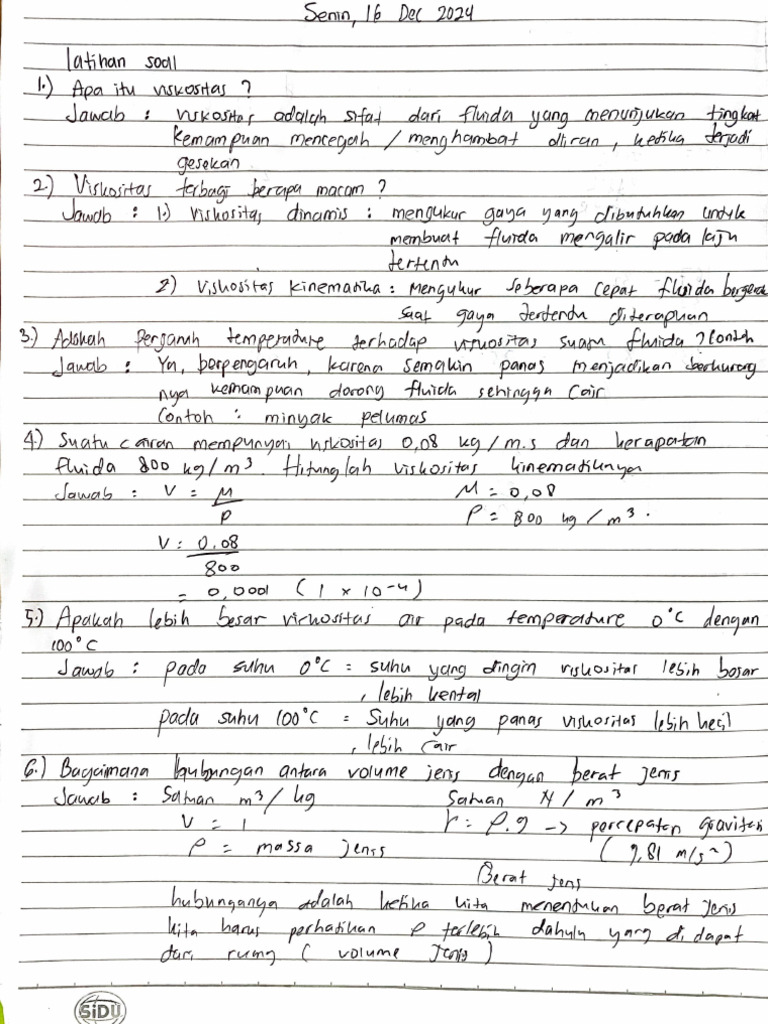 Senin, 16 Dec 2024
latihan soal
1.) Apa itu viskositas ?
Jawab : viskositas adalah sifat dari fluida yang menunjukan tingkat
kemampuan mencegah / menghambat aliran, ketika terjadi
gesekan
2.) Viskositas terbagi berapa macam ?
Jawab : 1.) Viskositas dinamis : mengukur gaya yang dibutuhkan untuk
membuat fluida mengalir pada laju
tertentu
2) Viskositas kinematika : Mengukur seberapa cepat fluida bergerak
saat gaya tertentu diterapkan
3.) Adakah pengaruh temperature terhadap viskositas suatu fluida ? Contoh
Jawab : Ya, berpengaruh, karena semakin panas menjadikan berkurang
nya kemampuan dorong fluida sehingga cair
Contoh : minyak pelumas
4.) Suatu cairan mempunyai viskositas 0,08 kg/m.s dan kerapatan
fluida 800 kg/m³. Hitunglah viskositas kinematiknya
Jawab : V = μ M = 0,08
ρ ρ = 800 kg/m³.
V = 0,08
800
= 0,0001 (1 × 10⁻⁴)
5.) Apakah lebih besar viskositas air pada temperature 0°C dengan
100°C
Jawab : pada suhu 0°C = suhu yang dingin viskositas lebih besar
, lebih kental
pada suhu 100°C = Suhu yang panas viskositas lebih kecil
, lebih cair
6.) Bagaimana hubungan antara volume jenis dengan berat jenis
Jawab : Satuan m³/kg Satuan N/m³
V = 1 γ = ρ.g → percepatan gravitasi
ρ = massa jenis (9,81 m/s²)
Berat jenis
hubunganya adalah ketika kita menentukan berat jenis
kita harus perhatikan ρ terlebih dahulu yang di dapat
dari rumus (volume jenis)
SiDU